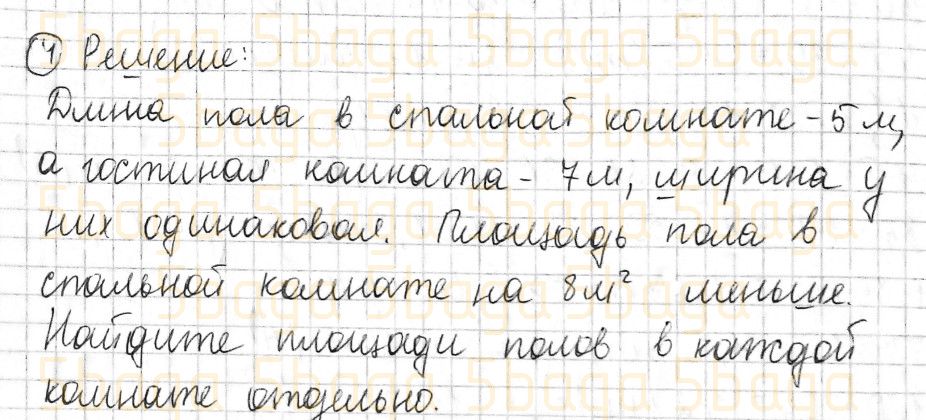 ④ Решение:
Длина пола в спальной комнате - 5 м,
а гостиная комната - 7м, ширина у
них одинаковая. Площадь пола в
спальной комнате на 8м² меньше.
Найдите площади полов в каждой
комнате отдельно.
5baga 5baga 5baga